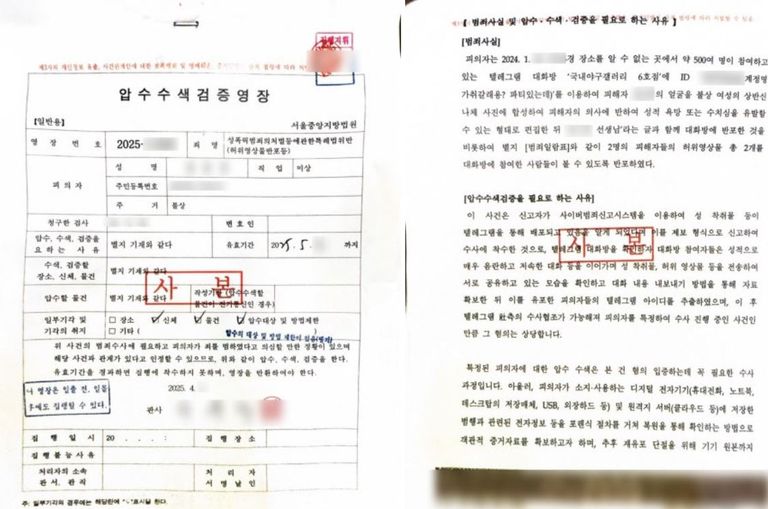 집행지휘
제3자의 개인정보 유출, 사건관계인에 대한 보복범죄 및 명예훼손,
압 수 수 색 검 증 영 장
【일반용】
서울중앙지방법원
영 장 번 호
2025-
죄 명
성폭력범죄의처벌등에관한특례법위반
(허위영상물반포등)
피 의 자
성 명
직 업
이상
주민등록번호
주 거
불상
청구한 검사
변 호 인
압수, 수색, 검증을
요 하 는 사 유
별지 기재와 같다
유효기간
2025. 5.
까지
수색, 검증할
장소, 신체, 물건
별지 기재와 같다
압수할 물건
별지 기재와 같다
작성기간 (압수수색할
물건이 전기통신인 경우)
사 본
일부기각 및
기각의 취지
□ 장소
신체
물건
압수대상 및 방법제한
□ 기타 (
압수의 대상 및 방법 제한이 있음(별지)
)
위 사건의 범죄수사에 필요하고 피의자가 죄를 범하였다고 의심할 만한 정황이 있으며
해당 사건과 관계가 있다고 인정할 수 있으므로, 위와 같이 압수, 수색, 검증을 한다.
유효기간을 경과하면 집행에 착수하지 못하며, 영장을 반환하여야 한다.
이 영장은 일출 전, 일몰
후에도 집행할 수 있다.
2025. 4.
판사
집 행 일 시
20 . . . :
집 행 장 소
집행불능사유
처리자의 소속
관서, 관직
처 리 자
서 명 날 인
주: 일부기각의 경우에는 해당란에 "✓"표시를 한다.
【 범죄사실 및 압수·수색·검증을 필요로 하는 사유 】
[범죄사실]
피의자는 2024. 1. 경 장소를 알 수 없는 곳에서 약 500여 명이 참여하고
있는 텔레그램 대화방 '국내야구갤러리 6호점'에 ID 계정명
가취갈래용? 파티있는데)'를 이용하여 피해자 의 얼굴을 불상 여성의 상반신
나체 사진에 합성하여 피해자의 의사에 반하여 성적 욕망 또는 수치심을 유발할
수 있는 형태로 편집한 뒤 선생님'라는 글과 함께 대화방에 반포한 것을
비롯하여 별지 [범죄일람표]와 같이 2명의 피해자들의 허위영상물 총 2개를
대화방에 참여한 사람들이 볼 수 있도록 반포하였다.
[압수수색검증을 필요로 하는 사유]
이 사건은 신고자가 사이버범죄신고시스템을 이용하여 성 착취물 등이
텔레그램을 통해 배포되고 있음을 알게 되었다며 이를 제보 형식으로 신고하여
수사에 착수한 것으로, 텔레그램 대화방을 확인하자 대화방 참여자들은 성적으로
매우 음란하고 저속한 대화 등을 이어가며 성 착취물, 허위 영상물 등을 전송하여
서로 공유하고 있는 모습을 확인하고 대화 내용 내보내기 방법을 통해 자료
확보한 뒤 이를 유포한 피의자들의 텔레그램 아이디를 추출하였으며, 이 후
텔레그램 社측의 수사협조가 가능해져 피의자를 특정하여 수사 진행 중인 사건인
만큼 그 혐의는 상당합니다.
사 본
특정된 피의자에 대한 압수 수색은 본 건 혐의 입증하는데 꼭 필요한 수사
과정입니다. 아울러, 피의자가 소지·사용하는 디지털 전자기기(휴대전화, 노트북,
데스크탑의 저장매체, USB, 외장하드 등) 및 원격지 서버(클라우드 등)에 저장한
범행과 관련된 전자정보 등을 포렌식 절차를 거쳐 복원을 통해 확인하는 방법으로
객관적 증거자료를 확보하고자 하며, 추후 재유포 단절을 위해 기기 원본까지